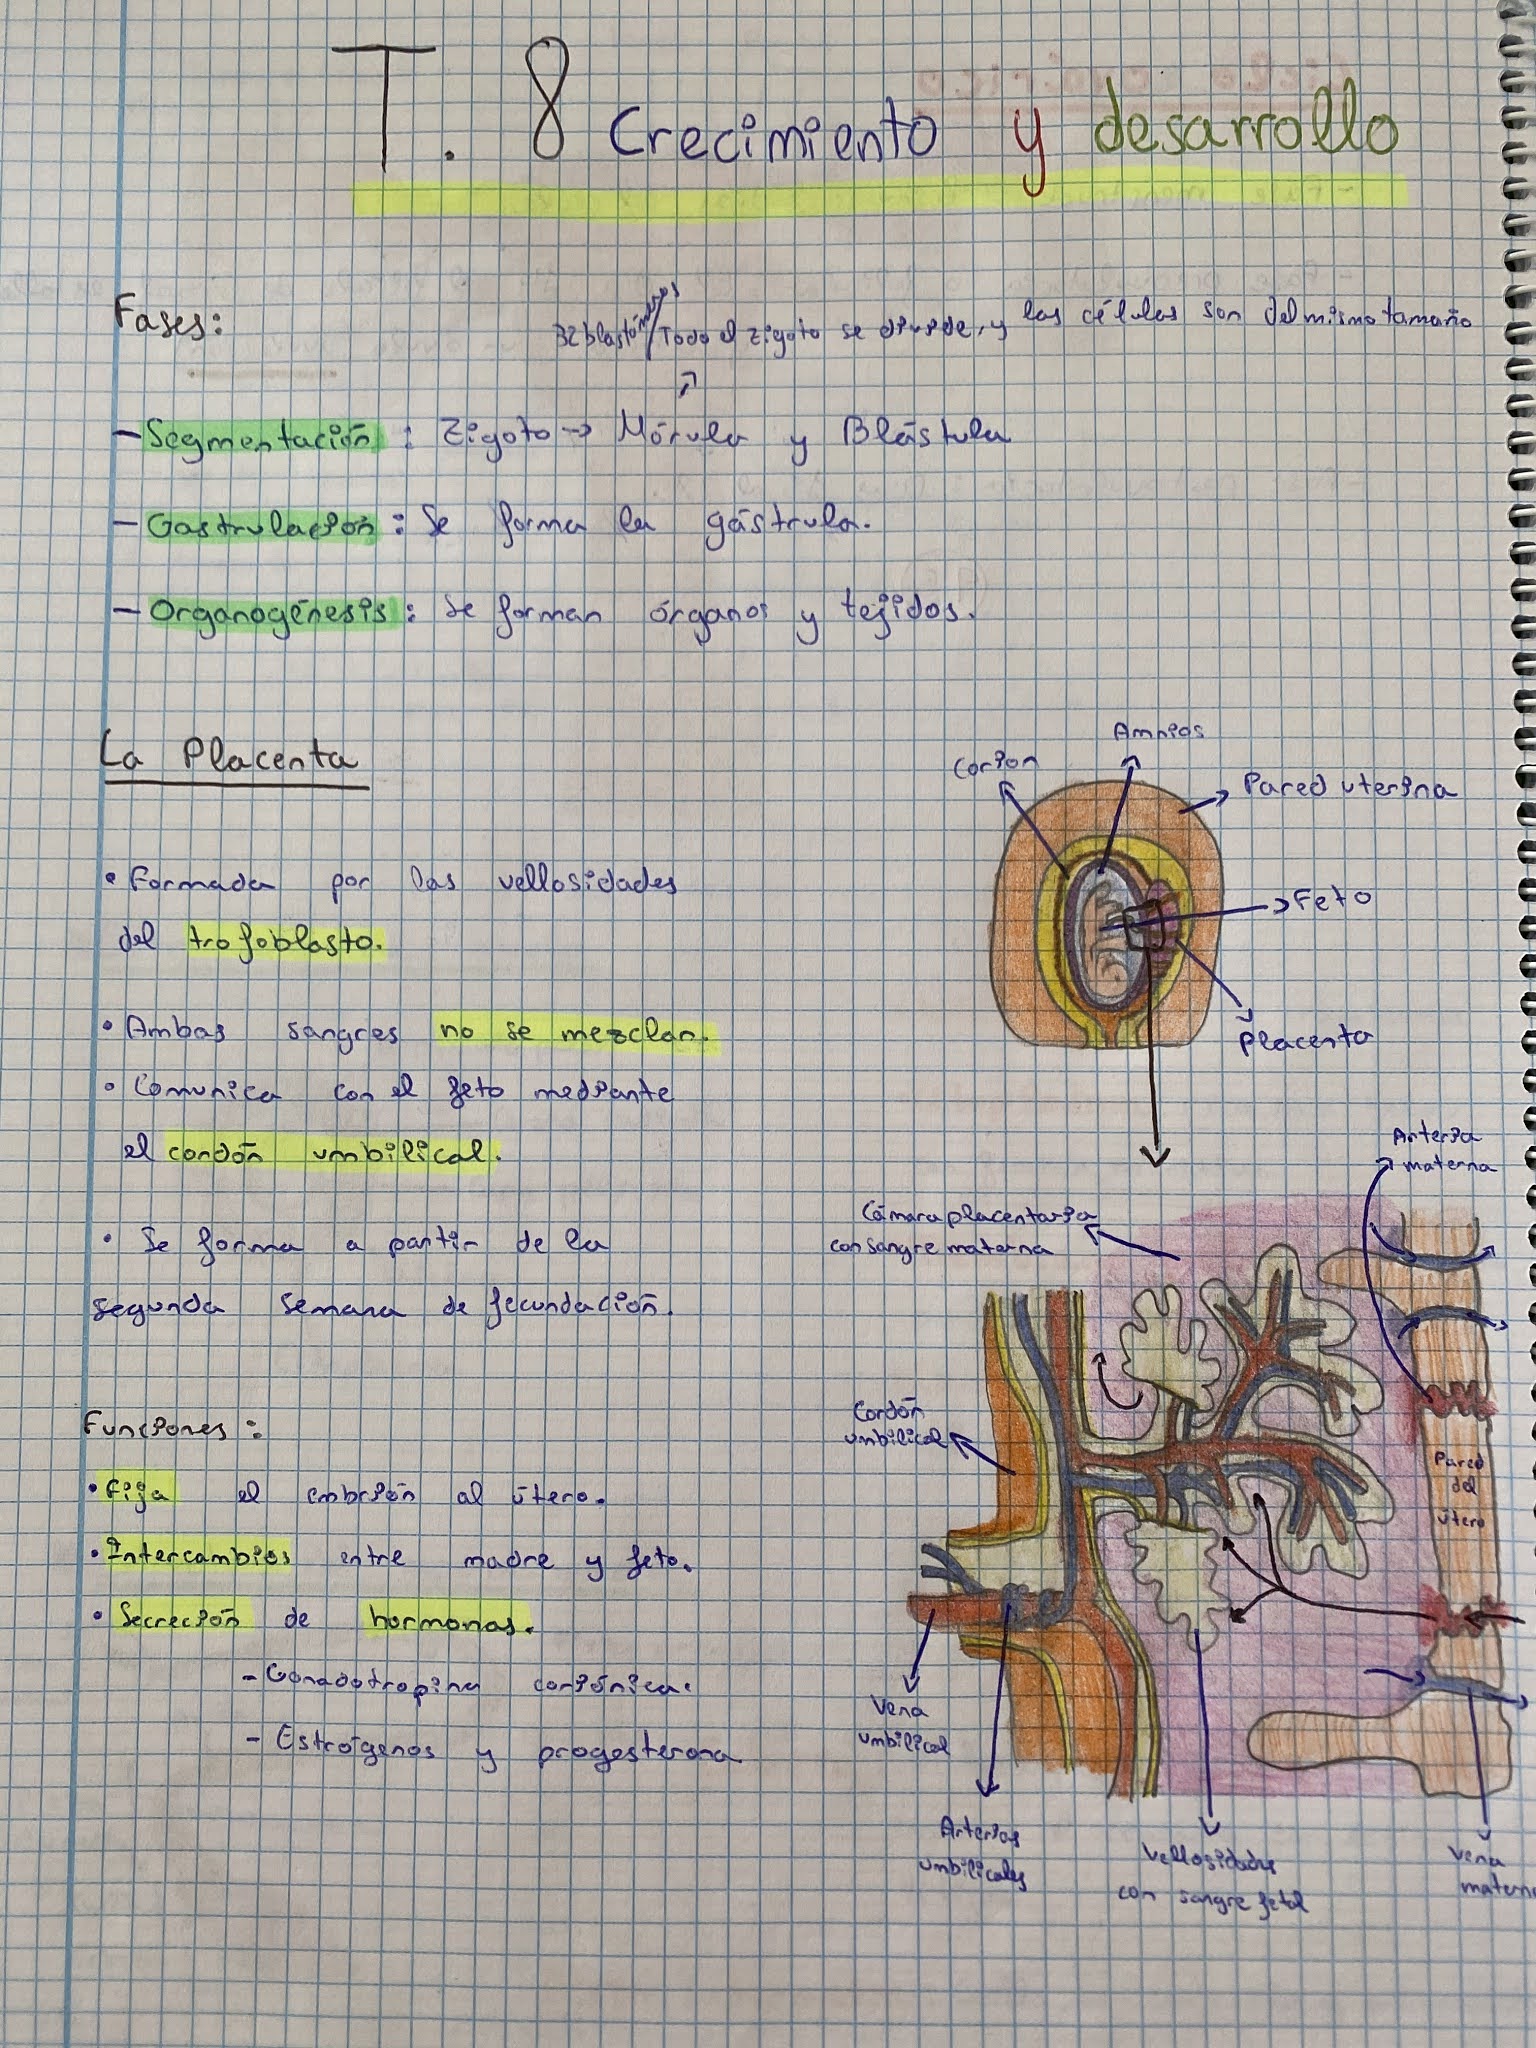 T. 8 Crecimiento y desarrollo
Fases:
32 blastómeros / Todo el zigoto se divide, y las células son del mismo tamaño
- Segmentación : Zigoto → Mórula y Blástula
- Gastrulación : Se forma la gástrula.
- Organogénesis : Se forman órganos y tejidos.
La Placenta
• Formada por las vellosidades
del trofoblasto.
• Ambas sangres no se mezclan.
• Comunica con el feto mediante
el cordón umbilical.
• Se forma a partir de la
segunda semana de fecundación.
Funciones :
• Fija el embrión al útero.
• Intercambios entre madre y feto.
• Secreción de hormonas.
- Gonadotropina coriónica.
- Estrógenos y progesterona
Amnios
Corion
Pared uterina
Feto
Placenta
Arteria
materna
Cámara placentaria
con sangre materna
Cordón
umbilical
Pared
del
útero
Vena
umbilical
Arterias
umbilicales
Vellosidades
con sangre fetal
Vena
materna